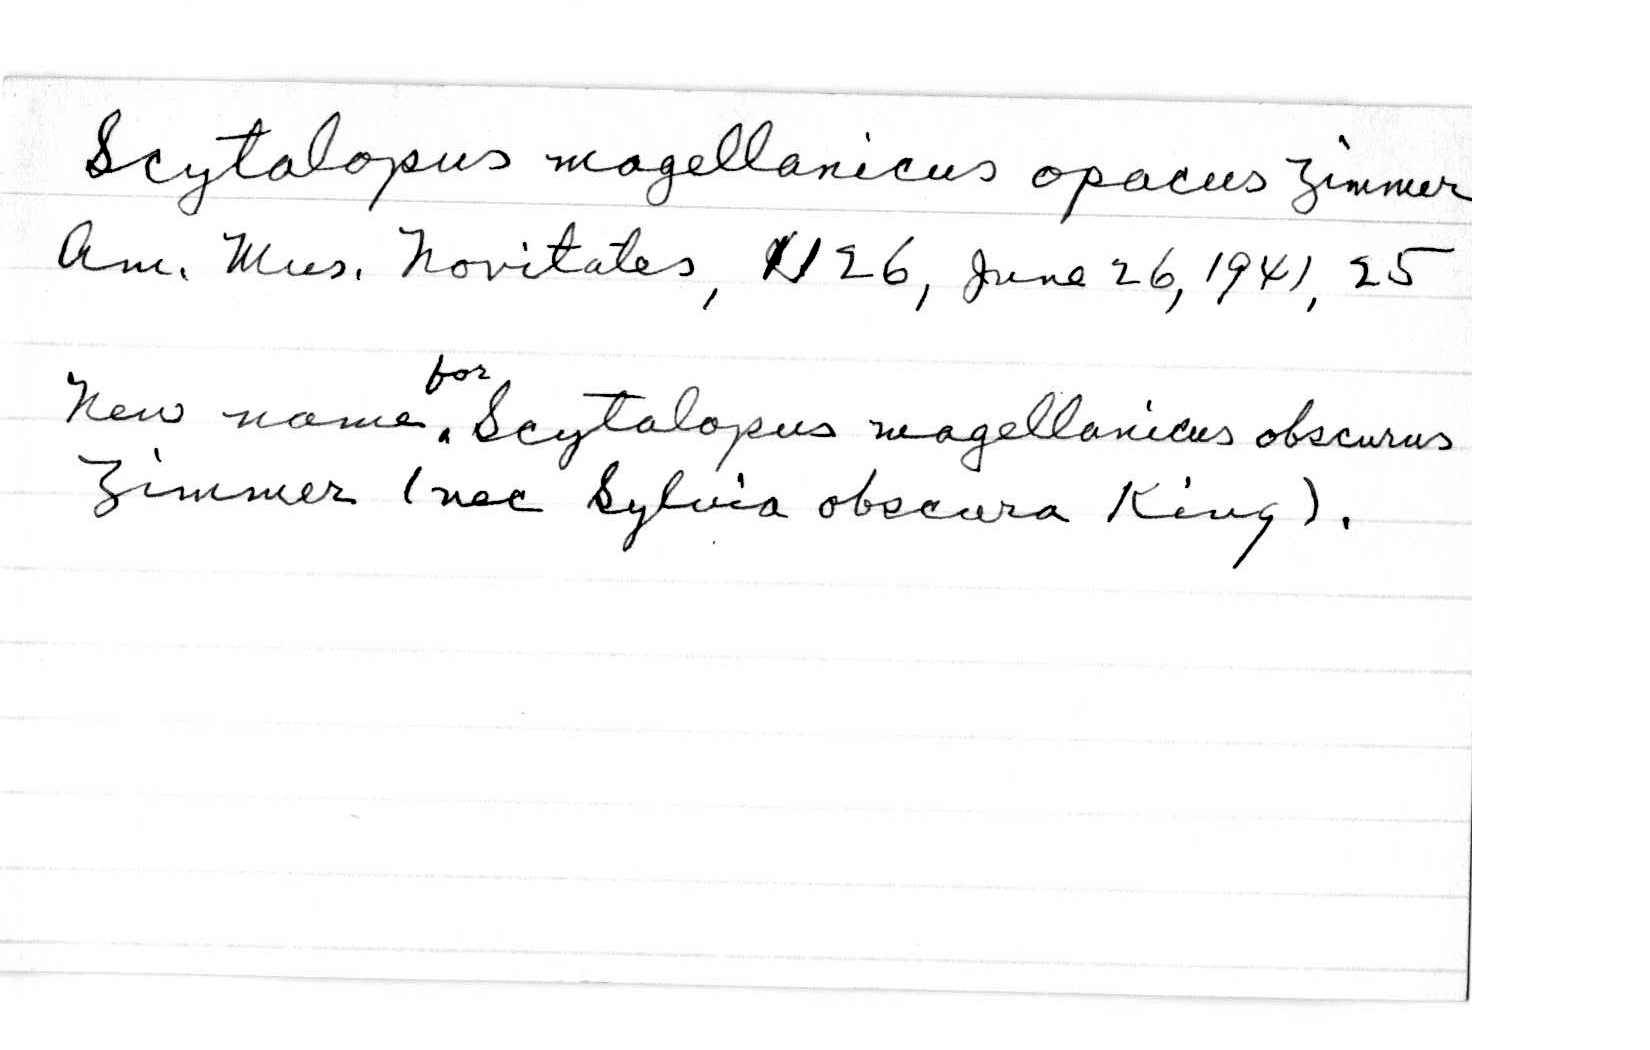 Scytalopus magellanicus opacus Zimmer
Am. Mus. Novitates, 1126, June 26, 1941, 25
New name for Scytalopus magellanicus obscurus
Zimmer (nec Sylvia obscura King).